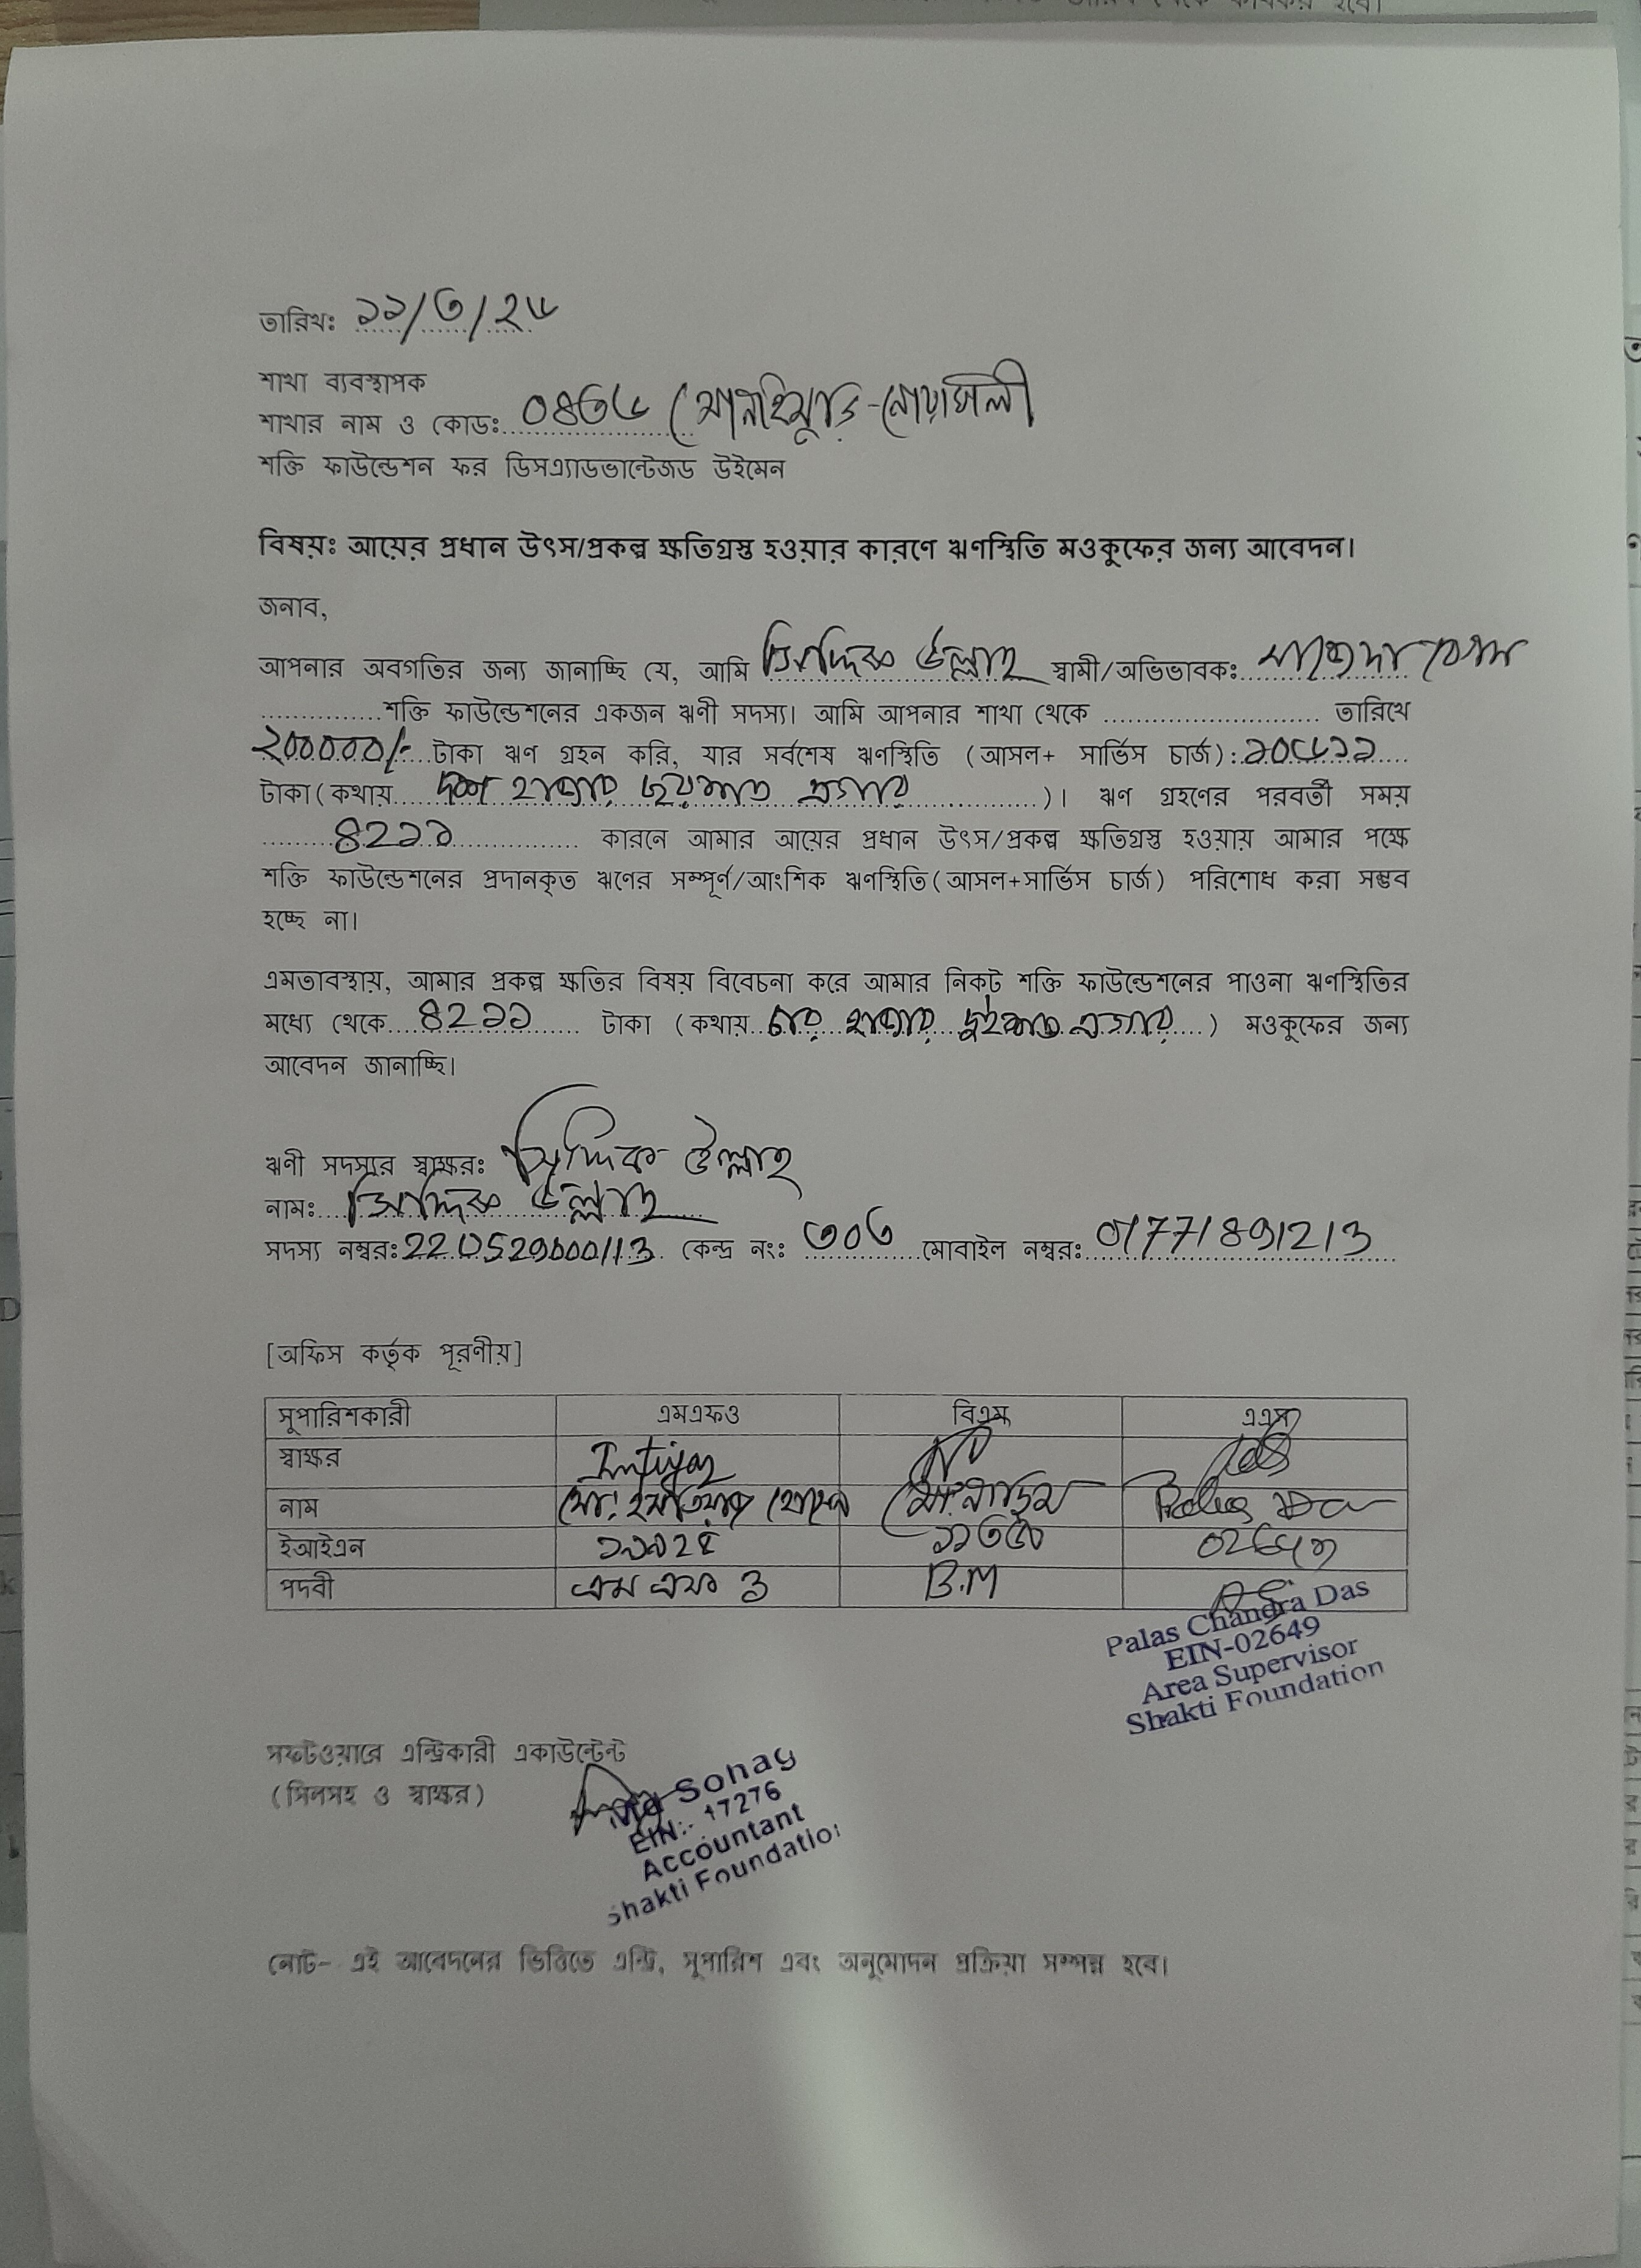 তারিখঃ ১১/৩/২৬
শাখা ব্যবস্থাপক
শাখার নাম ও কোডঃ ০৪৩৬ (সোনাইমুড়ি-নোয়াখালী
শক্তি ফাউন্ডেশন ফর ডিসএ্যাডভান্টেজড উইমেন
বিষয়ঃ আয়ের প্রধান উৎস/প্রকল্প ক্ষতিগ্রস্ত হওয়ার কারণে ঋণস্থিতি মওকুফের জন্য আবেদন।
জনাব,
আপনার অবগতির জন্য জানাচ্ছি যে, আমি সিদ্দিক উল্লাহ স্বামী/অভিভাবকঃ বেগম
শক্তি ফাউন্ডেশনের একজন ঋণী সদস্য। আমি আপনার শাখা থেকে .......................... তারিখে
২০০০০০/- টাকা ঋণ গ্রহন করি, যার সর্বশেষ ঋণস্থিতি (আসল+ সার্ভিস চার্জ):১০৬১১
টাকা(কথায় দশ হাজার ছয়শত এগার )। ঋণ গ্রহণের পরবর্তী সময়
৪২১১ কারনে আমার আয়ের প্রধান উৎস/প্রকল্প ক্ষতিগ্রস্ত হওয়ায় আমার পক্ষে
শক্তি ফাউন্ডেশনের প্রদানকৃত ঋণের সম্পূর্ণ/আংশিক ঋণস্থিতি(আসল+সার্ভিস চার্জ) পরিশোধ করা সম্ভব
হচ্ছে না।
এমতাবস্থায়, আমার প্রকল্প ক্ষতির বিষয় বিবেচনা করে আমার নিকট শক্তি ফাউন্ডেশনের পাওনা ঋণস্থিতির
মধ্যে থেকে ৪২১১ টাকা (কথায় চার হাজার দুইশত এগার ) মওকুফের জন্য
আবেদন জানাচ্ছি।
ঋণী সদস্যর স্বাক্ষরঃ সিদ্দিক উল্লাহ
নামঃ সিদ্দিক উল্লাহ
সদস্য নম্বরঃ 22052900013 কেন্দ্র নংঃ ৩০৩ মোবাইল নম্বরঃ 01771891213
[অফিস কর্তৃক পূরণীয়]
সুপারিশকারী এমএফও বিএম এএস
স্বাক্ষর Imtiyaz
নাম মোঃ ইমতিয়াজ হোসেন মোঃ Palas Das
ইআইএন
পদবী এম এফ ও B.M
Palas Chandra Das
EIN-02649
Area Supervisor
Shakti Foundation
সফটওয়ারে এন্ট্রিকারী একাউন্টেন্ট
(সিলসহ ও স্বাক্ষর)
Md Sohag
EIN:- 17276
Accountant
Shakti Foundation
নোট- এই আবেদনের ভিত্তিতে এন্ট্রি, সুপারিশ এবং অনুমোদন প্রক্রিয়া সম্পন্ন হবে।